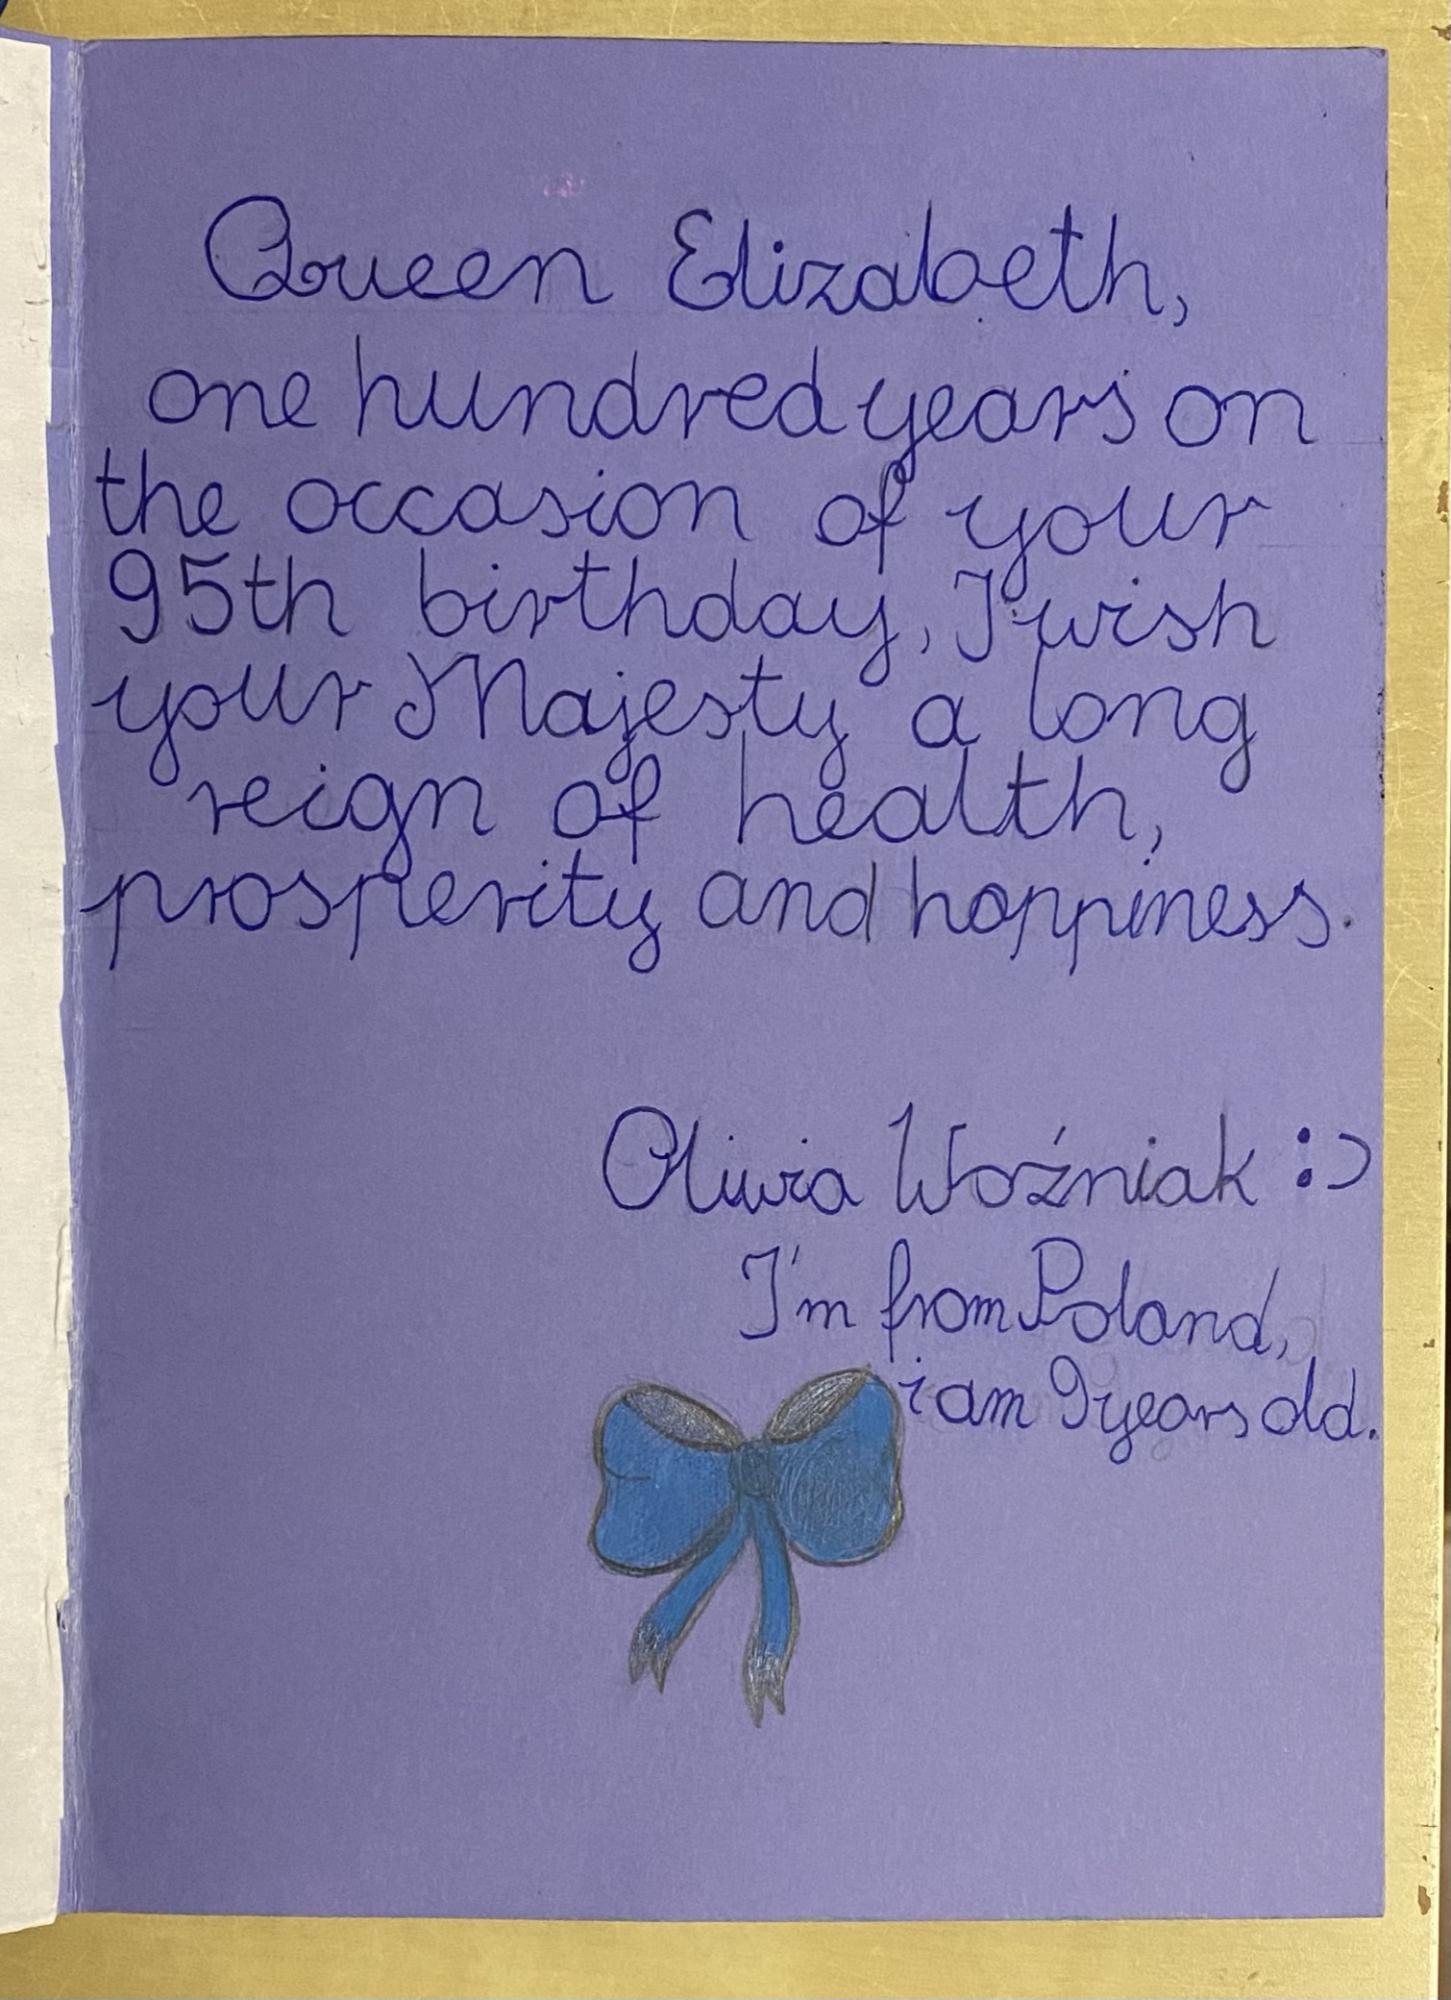 Queen Elizabeth,
one hundred years on
the occasion of your
95th birthday, I wish
your Majesty a long
reign of health,
prosperity and happiness.
Oliwia Woźniak :)
I'm from Poland,
i am 9 years old.